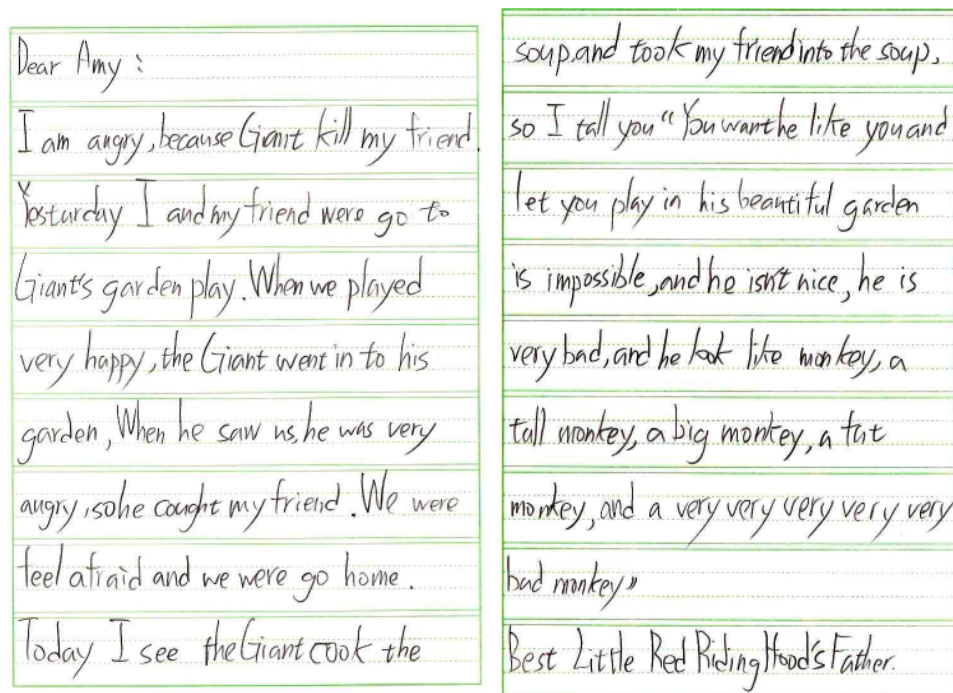 Dear Amy :
I am angry, because Giant kill my friend.
Yesturday I and my friend were go to
Giant's garden play. When we played
very happy, the Giant went in to his
garden, When he saw us, he was very
angry, so he cought my friend. We were
feel afraid and we were go home.
Today I see the Giant cook the
soup, and took my friend into the soup,
so I tall you “You want he like you and
let you play in his beautiful garden
is impossible, and he isn't nice, he is
very bad, and he look like monkey, a
tall monkey, a big monkey, a fat
monkey, and a very very very very very
bad monkey”
Best Little Red Riding Hood's Father.